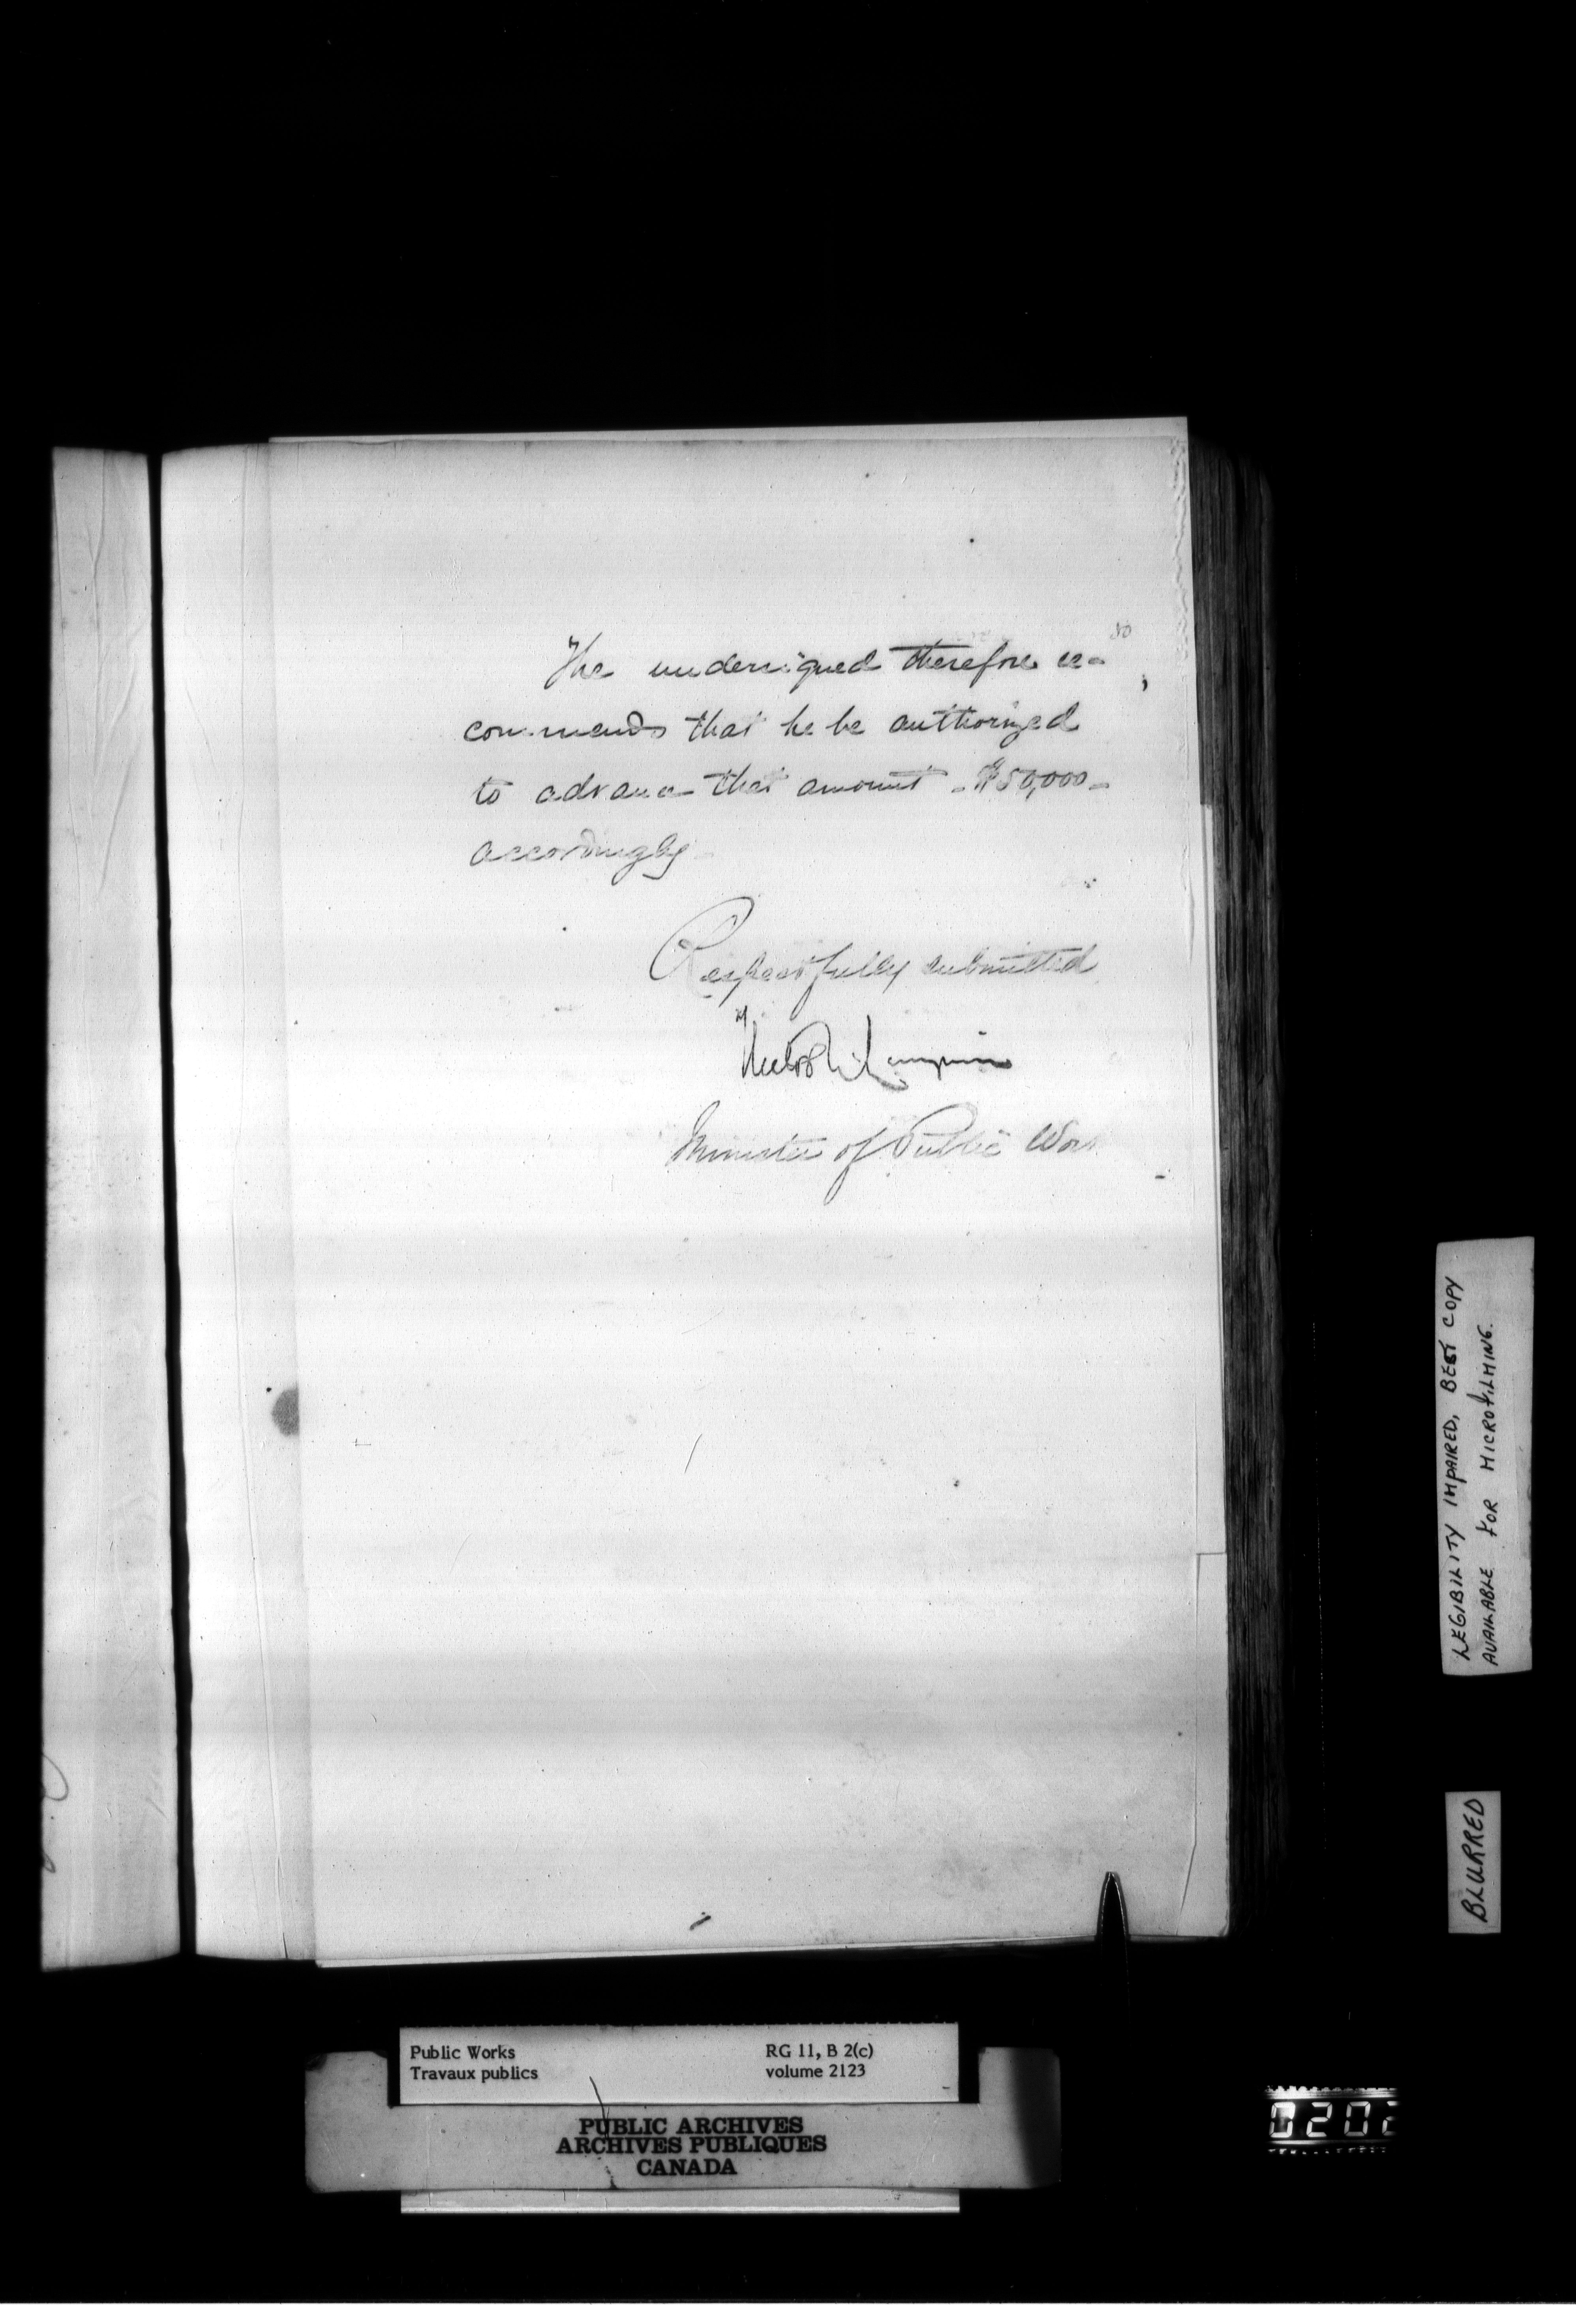 80
The undersigned therefore re-
commends that he be authorized
to advance that amount - $50,000 -
accordingly
Respectfully submitted
Hector L. Langevin
Minister of Public Wor
LEGIBILITY IMPAIRED, BEST COPY
AVAILABLE FOR MICROFILMING.
BLURRED
Public Works
Travaux publics
RG 11, B 2(c)
volume 2123
PUBLIC ARCHIVES
ARCHIVES PUBLIQUES
CANADA
0202